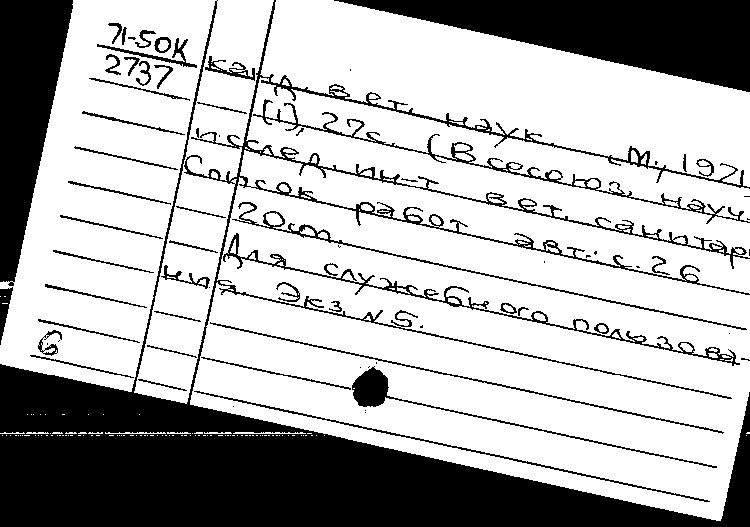 71-50К
2737
канд. вет. наук. М., 1971.
[1], 27с. (Всесоюз. науч.-
исслед. ин-т вет. санитар
Список работ авт.: с. 26
20см.
Для служебного пользова-
ния. Экз. N 5.
6